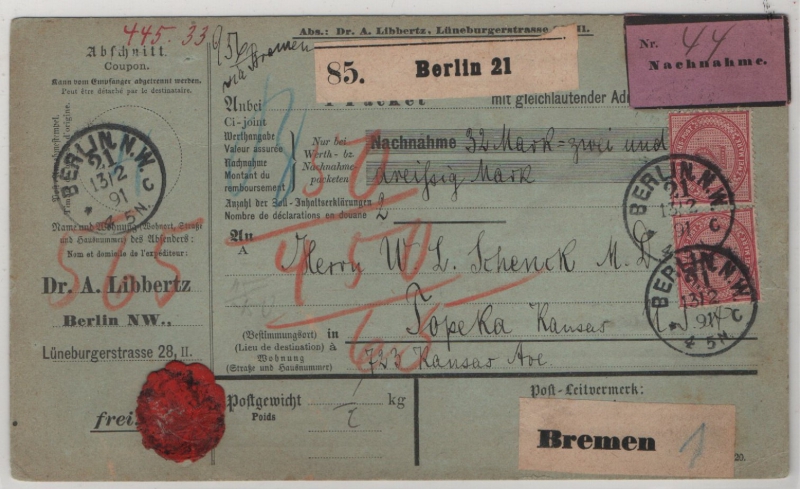 445.33
Abschnitt.
Coupon.
Kann vom Empfänger abgetrennt werden.
Peut être détaché par le destinataire.
BERLIN, N.W.
21
13/2
91
4-5N.
C
Name und Wohnung (Wohnort, Straße
und Hausnummer) des Absenders:
Nom et domicile de l'expéditeur:
565
Dr. A. Libbertz
Berlin NW.,
Lüneburgerstrasse 28, II.
frei
Abs.: Dr. A. Libbertz, Lüneburgerstrasse
II.
via Bremen
85. Berlin 21
Nr. 44
Nachnahme.
Anbei
Ci-joint
mit gleichlautender
Werthangabe
Valeur assurée
Nachnahme
Montant du
remboursement
Nur bei
Werth- bz.
Nachnahme-
packeten
Nachnahme 32 Mark = zwei und
dreissig Mark
Anzahl der Zoll-Inhaltserklärungen
Nombre de déclarations en douane
2
50
450
65
An
A
Herrn W. L. Schenck M. D.
(Bestimmungsort) in
(Lieu de destination) à
Topeka Kansas
Wohnung
(Straße und Hausnummer)
723 Kansas Ave.
BERLIN, N.W.
21
13/2
91
C
BERLIN, N.W.
21
13/2
91
4-5N.
C
Postgewicht
Poids
kg
Post-Leitvermerk:
Bremen 1
20.